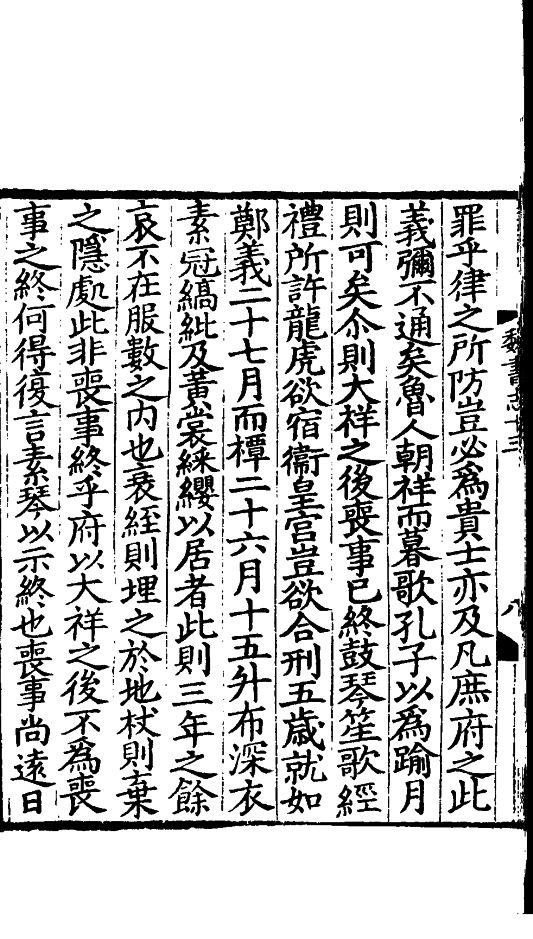 魏書志十三
八
罪乎律之所防豈必爲貴士亦及凡庶府之此
義彌不通矣魯人朝祥而暮歌孔子以爲踰月
則可矣尒則大祥之後喪事已終鼓琴笙歌經
禮所許龍虎欲宿衞皇宮豈欲合刑五歲就如
鄭義二十七月而禫二十六月十五升布深衣
素冠縞紕及黃裳綵纓以居者此則三年之餘
哀不在服數之内也衰絰則埋之於地杖則棄
之隱處此非喪事終乎府以大祥之後不爲喪
事之終何得復言素琴以示終也喪事尚遠日